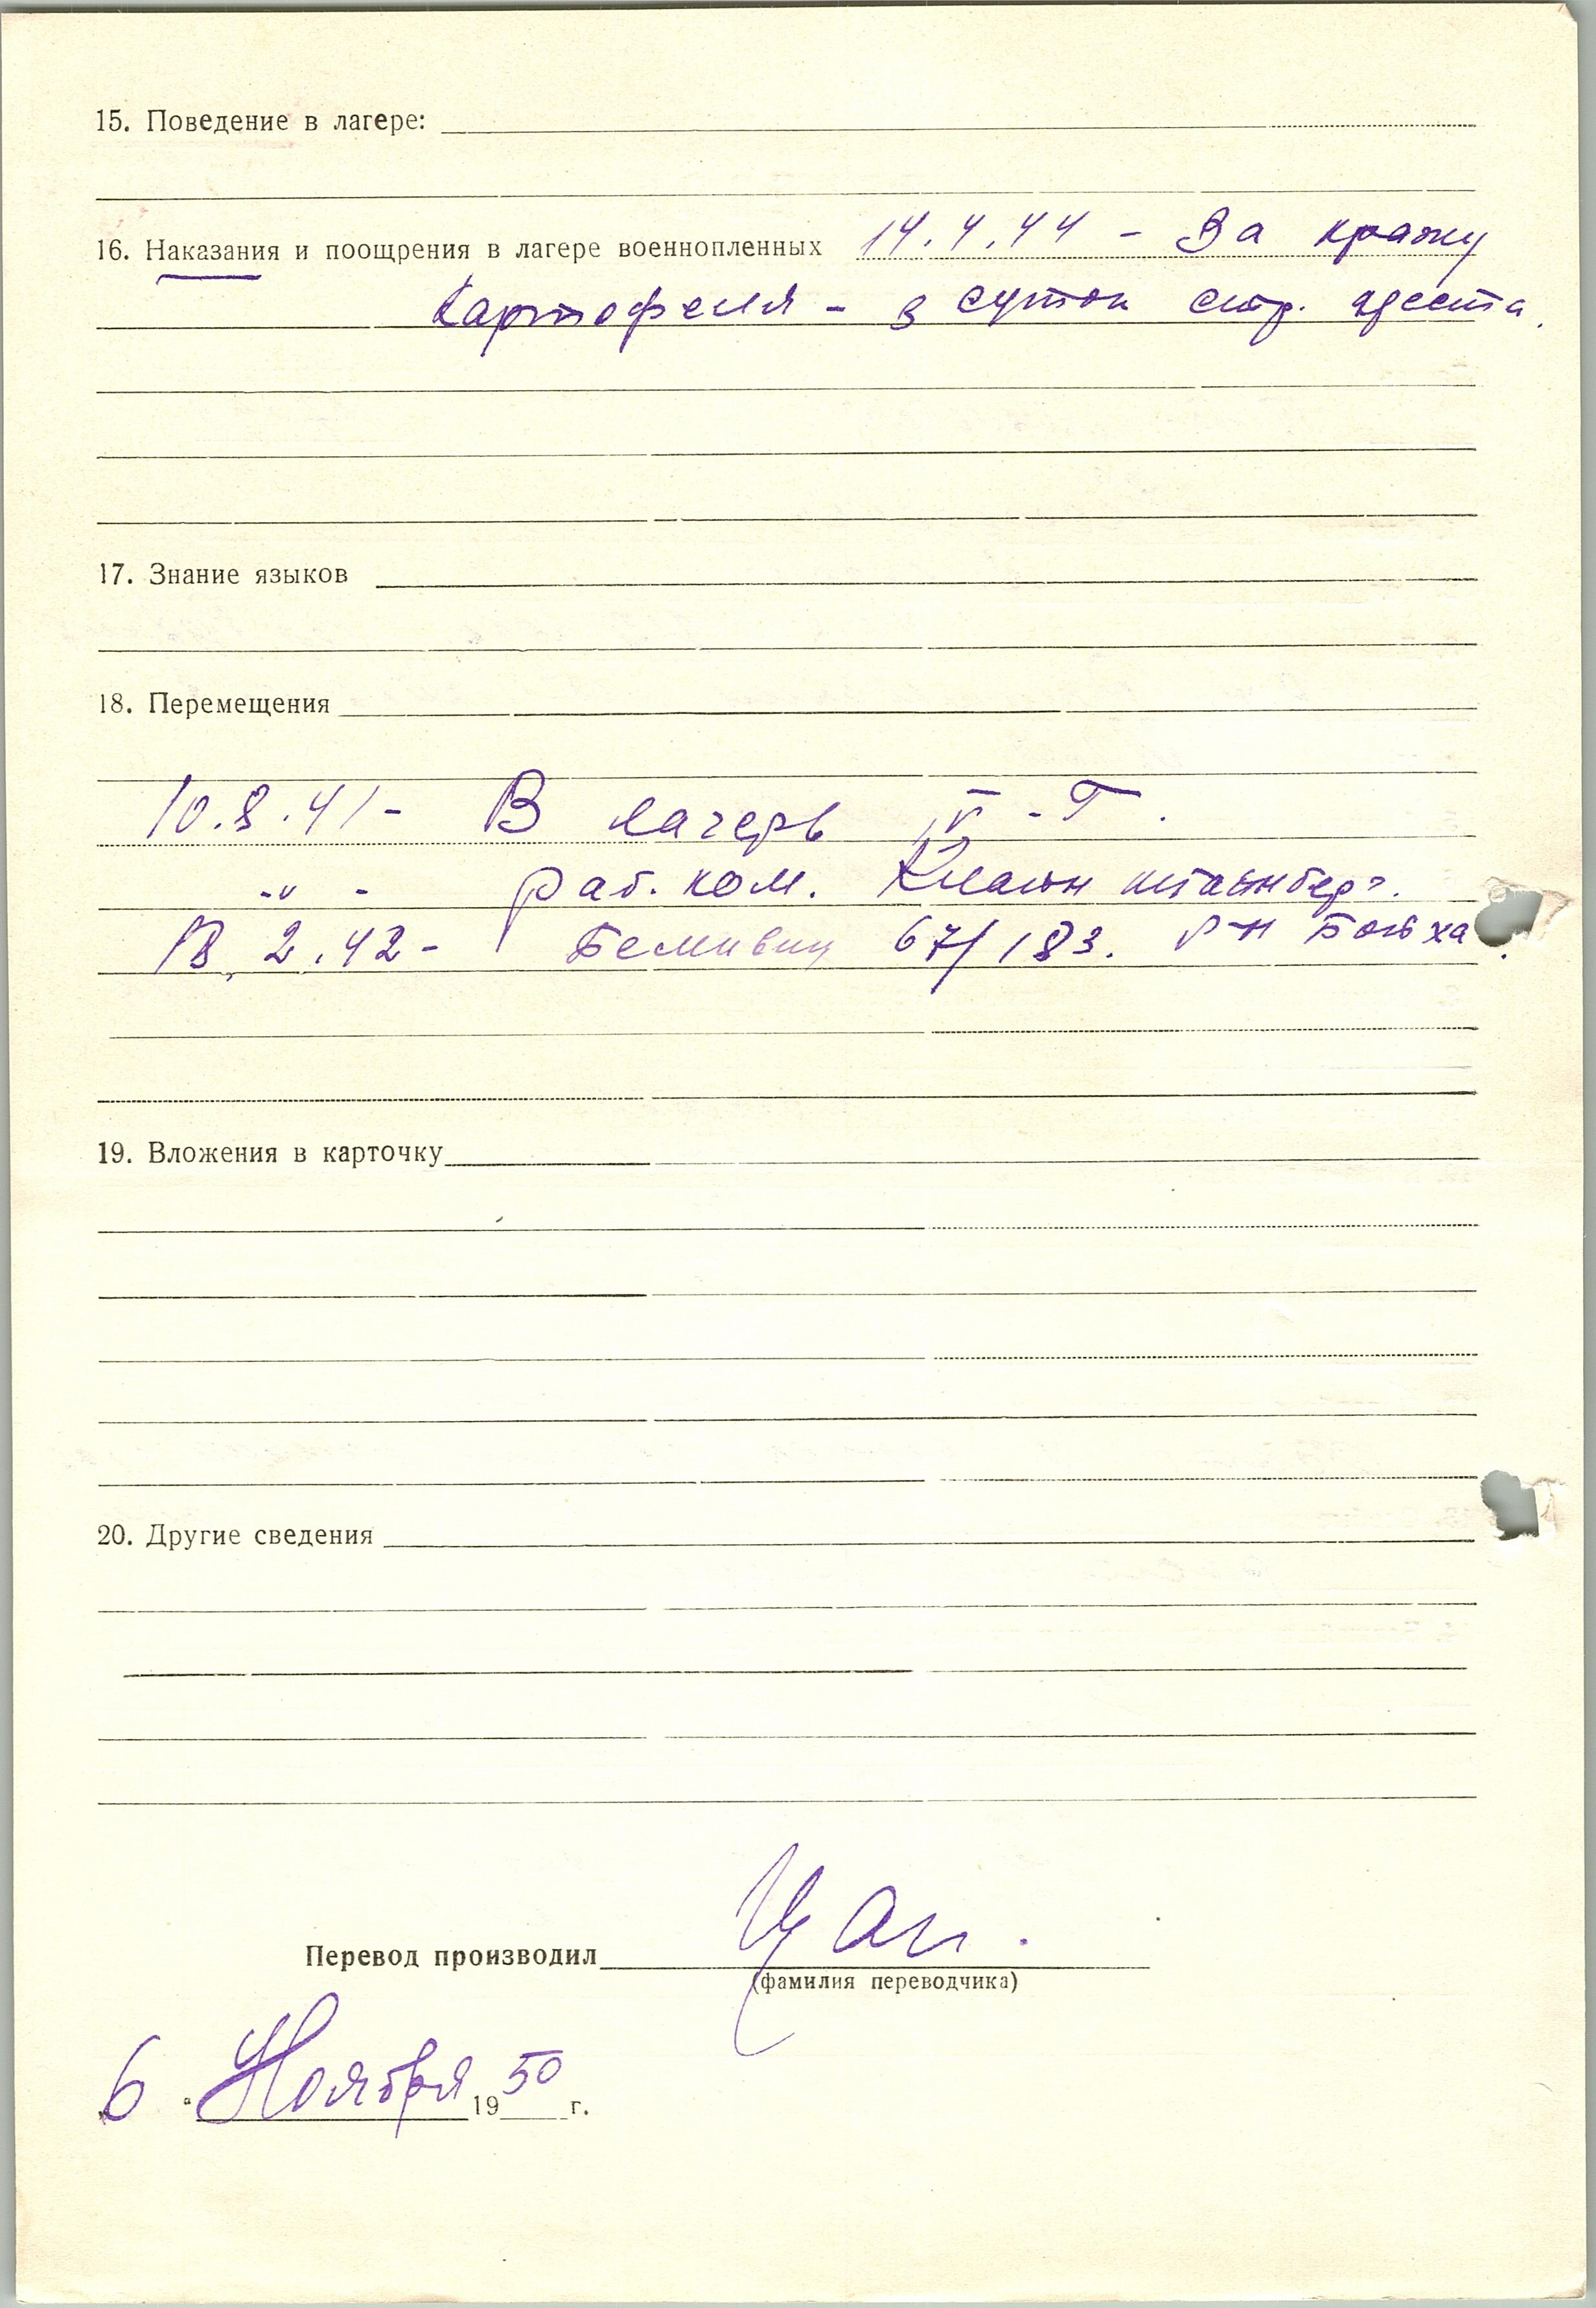 15. Поведение в лагере:
16. Наказания и поощрения в лагере военнопленных 14.4.44 - За кражу
картофеля - 3 суток стр. ареста.
17. Знание языков
18. Перемещения
10.8.41 - В лагерь IV-Г.
-"- раб. ком. Кляйн штайнберг.
13.2.42 - 67/183. р-н
19. Вложения в карточку
20. Другие сведения
Перевод производил
(фамилия переводчика)
„6“ Ноября 1950 г.